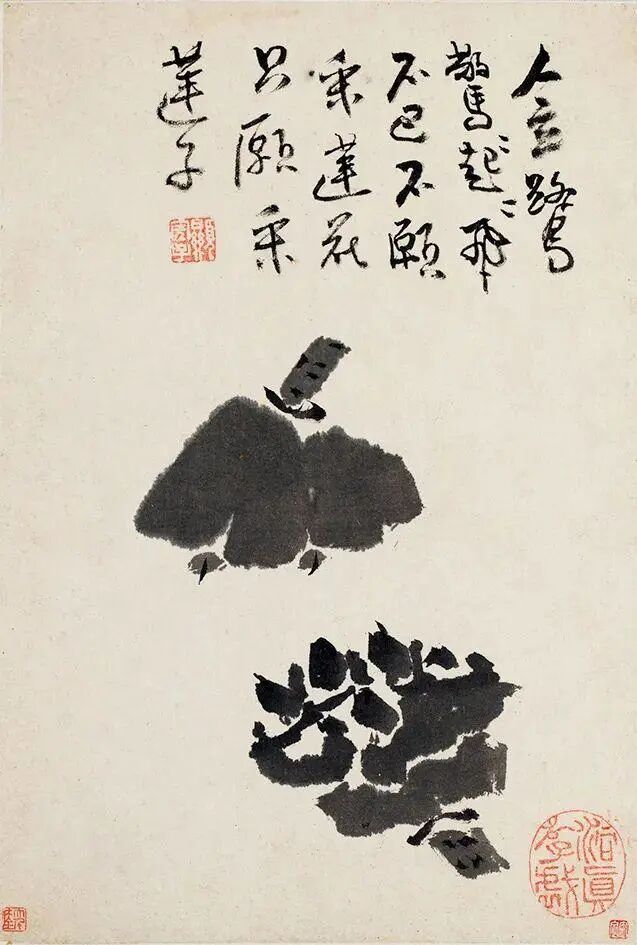 人立鷺
驚〻起〻飛
不已不願
采蓮花
只願采
蓮子